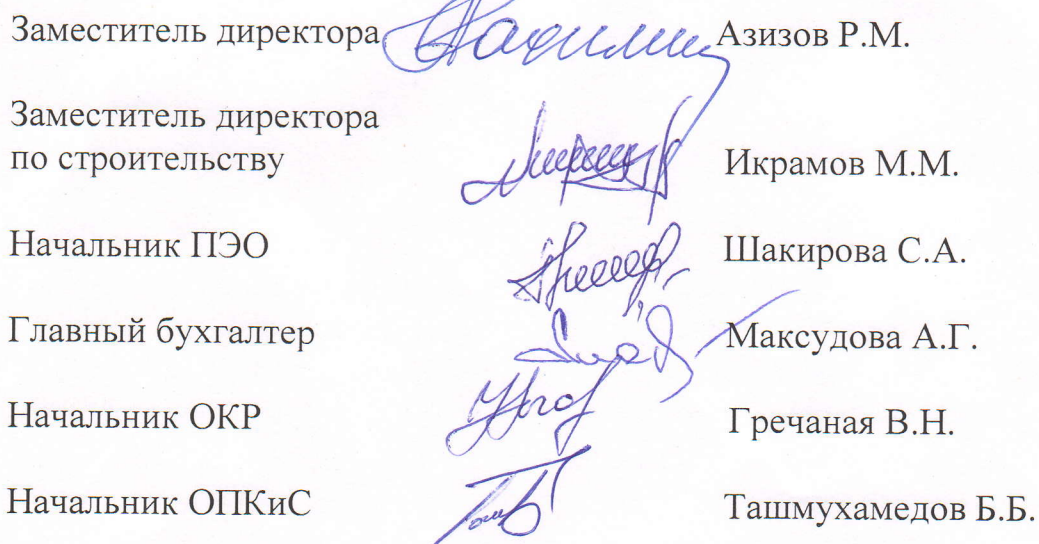 Заместитель директора Азизов Р.М.
Заместитель директора
по строительству Икрамов М.М.
Начальник ПЭО Шакирова С.А.
Главный бухгалтер Максудова А.Г.
Начальник ОКР Гречаная В.Н.
Начальник ОПКиС Ташмухамедов Б.Б.